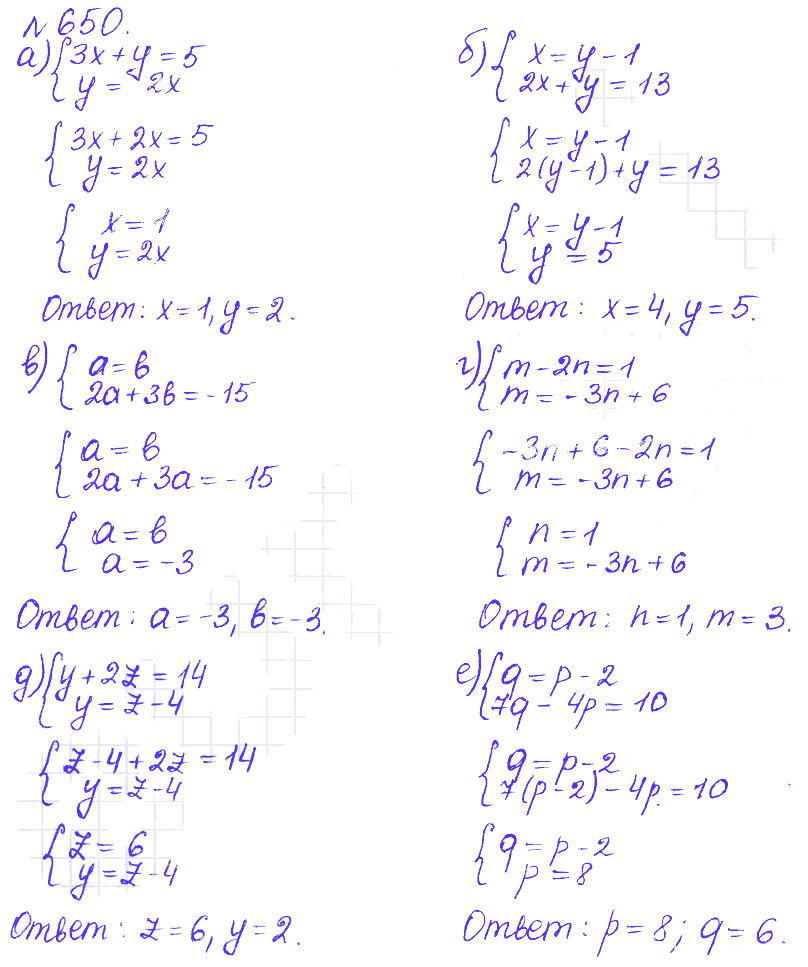 № 650.
а) { 3x + y = 5
y = 2x
{ 3x + 2x = 5
y = 2x
{ x = 1
y = 2x
Ответ: x = 1, y = 2.
б) { x = y - 1
2x + y = 13
{ x = y - 1
2(y - 1) + y = 13
{ x = y - 1
y = 5
Ответ: x = 4, y = 5.
в) { a = b
2a + 3b = -15
{ a = b
2a + 3a = -15
{ a = b
a = -3
Ответ: a = -3, b = -3.
г) { m - 2n = 1
m = -3n + 6
{ -3n + 6 - 2n = 1
m = -3n + 6
{ n = 1
m = -3n + 6
Ответ: n = 1, m = 3.
д) { y + 2z = 14
y = z - 4
{ z - 4 + 2z = 14
y = z - 4
{ z = 6
y = z - 4
Ответ: z = 6, y = 2.
е) { q = p - 2
7q - 4p = 10
{ q = p - 2
7(p - 2) - 4p = 10
{ q = p - 2
p = 8
Ответ: p = 8; q = 6.